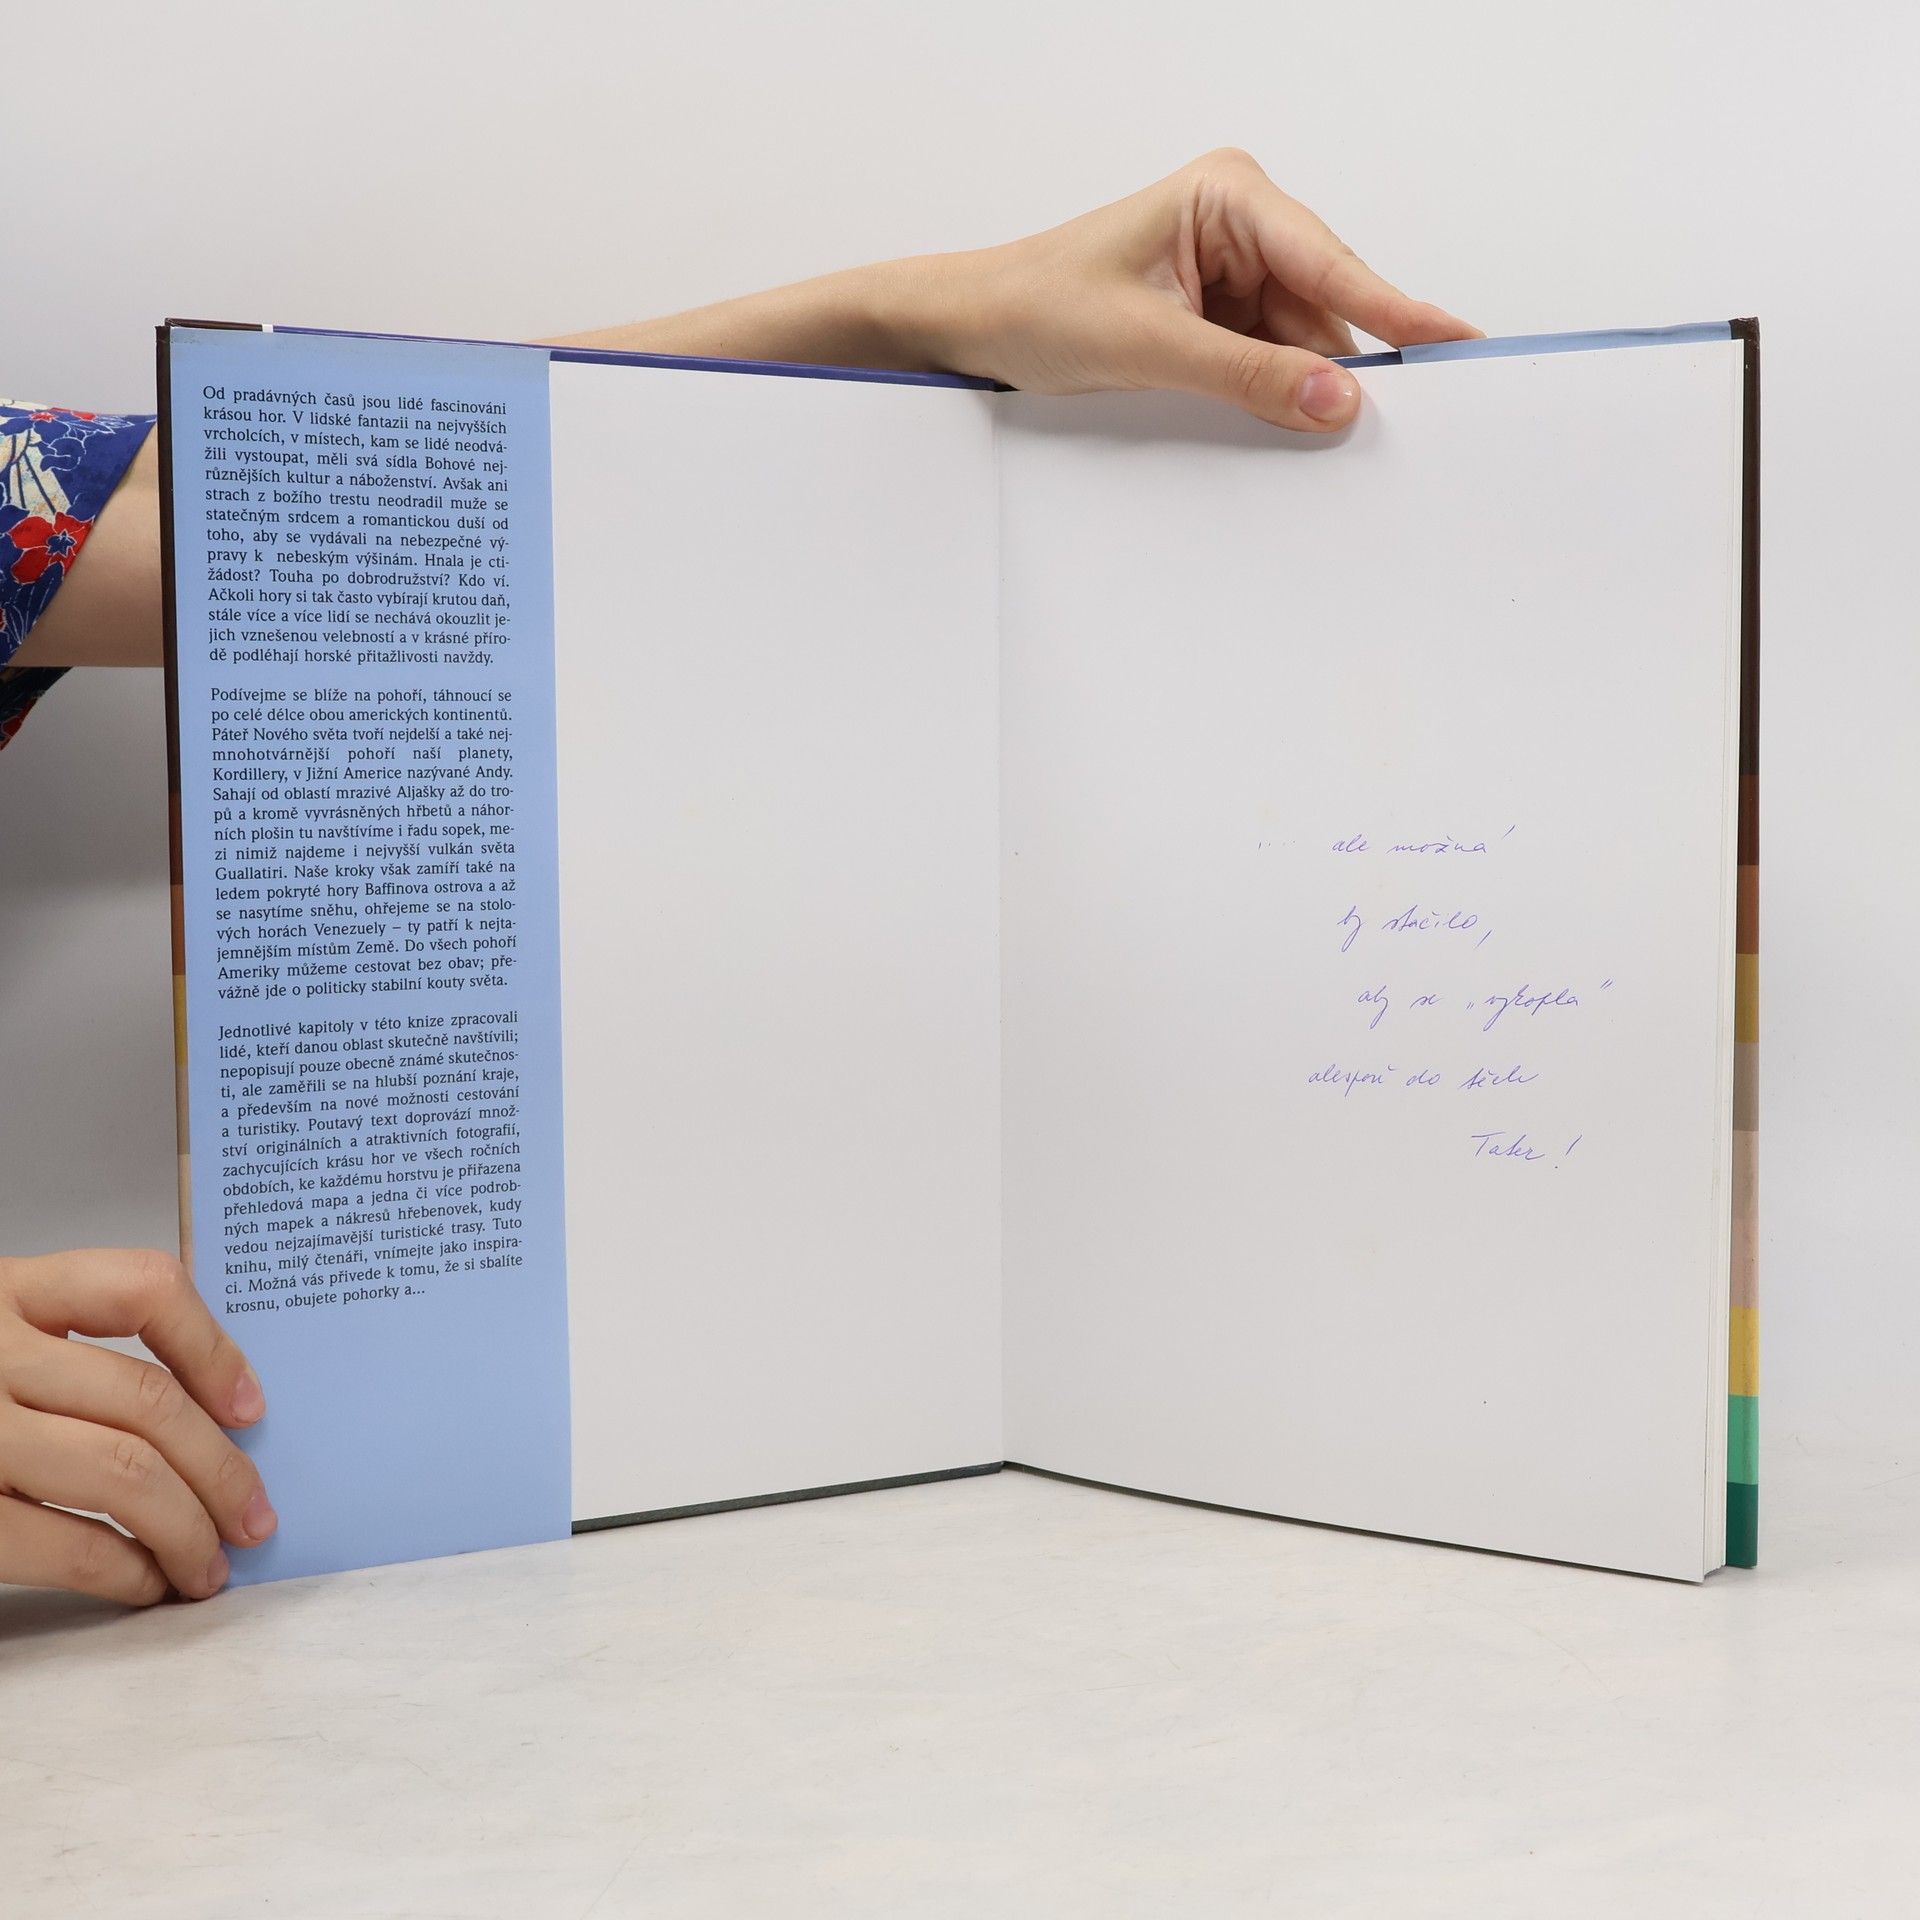 Od pradávných časů jsou lidé fascinováni
krásou hor. V lidské fantazii na nejvyšších
vrcholcích, v místech, kam se lidé neodvá-
žili vystoupat, měli svá sídla Bohové nej-
různějších kultur a náboženství. Avšak ani
strach z božího trestu neodradil muže se
statečným srdcem a romantickou duší od
toho, aby se vydávali na nebezpečné vý-
pravy k nebeským výšinám. Hnala je cti-
žádost? Touha po dobrodružství? Kdo ví.
Ačkoli hory si tak často vybírají krutou daň,
stále více a více lidí se nechává okouzlit je-
jich vznešenou velebností a v krásné příro-
dě podléhají horské přitažlivosti navždy.
Podívejme se blíže na pohoří, táhnoucí se
po celé délce obou amerických kontinentů.
Páteř Nového světa tvoří nejdelší a také nej-
mnohotvárnější pohoří naší planety,
Kordillery, v Jižní Americe nazývané Andy.
Sahají od oblastí mrazivé Aljašky až do tro-
pů a kromě vyvrásněných hřbetů a náhor-
ních plošin tu navštívíme i řadu sopek, me-
zi nimiž najdeme i nejvyšší vulkán světa
Guallatiri. Naše kroky však zamíří také na
ledem pokryté hory Baffinova ostrova a až
se nasytíme sněhu, ohřejeme se na stolo-
vých horách Venezuely – ty patří k nejta-
jemnějším místům Země. Do všech pohoří
Ameriky můžeme cestovat bez obav; pře-
vážně jde o politicky stabilní kouty světa.
Jednotlivé kapitoly v této knize zpracovali
lidé, kteří danou oblast skutečně navštívili;
nepopisují pouze obecně známé skutečnos-
ti, ale zaměřili se na hlubší poznání kraje,
a především na nové možnosti cestování
a turistiky. Poutavý text doprovází množ-
ství originálních a atraktivních fotografií,
zachycujících krásu hor ve všech ročních
obdobích, ke každému horstvu je přiřazena
přehledová mapa a jedna či více podrob-
ných mapek a nákresů hřebenovek, kudy
vedou nejzajímavější turistické trasy. Tuto
knihu, milý čtenáři, vnímejte jako inspira-
ci. Možná vás přivede k tomu, že si sbalíte
krosnu, obujete pohorky a...
.... ale možná
by stačilo,
aby se „vykopla"
alespoň do těch
Tater!